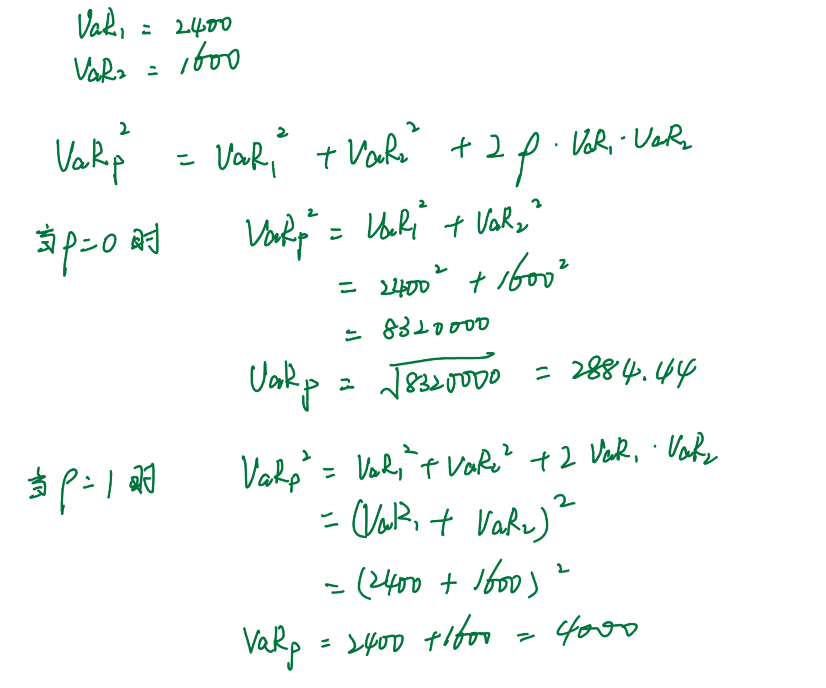 VaR₁ = 2400
VaR₂ = 1600
VaRₚ² = VaR₁² + VaR₂² + 2ρ · VaR₁ · VaR₂
当 ρ=0 时 VaRₚ² = VaR₁² + VaR₂²
= 2400² + 1600²
= 8320000
VaRₚ = √8320000 = 2884.44
当 ρ=1 时 VaRₚ² = VaR₁² + VaR₂² + 2 VaR₁ · VaR₂
= (VaR₁ + VaR₂)²
= (2400 + 1600)²
VaRₚ = 2400 + 1600 = 4000